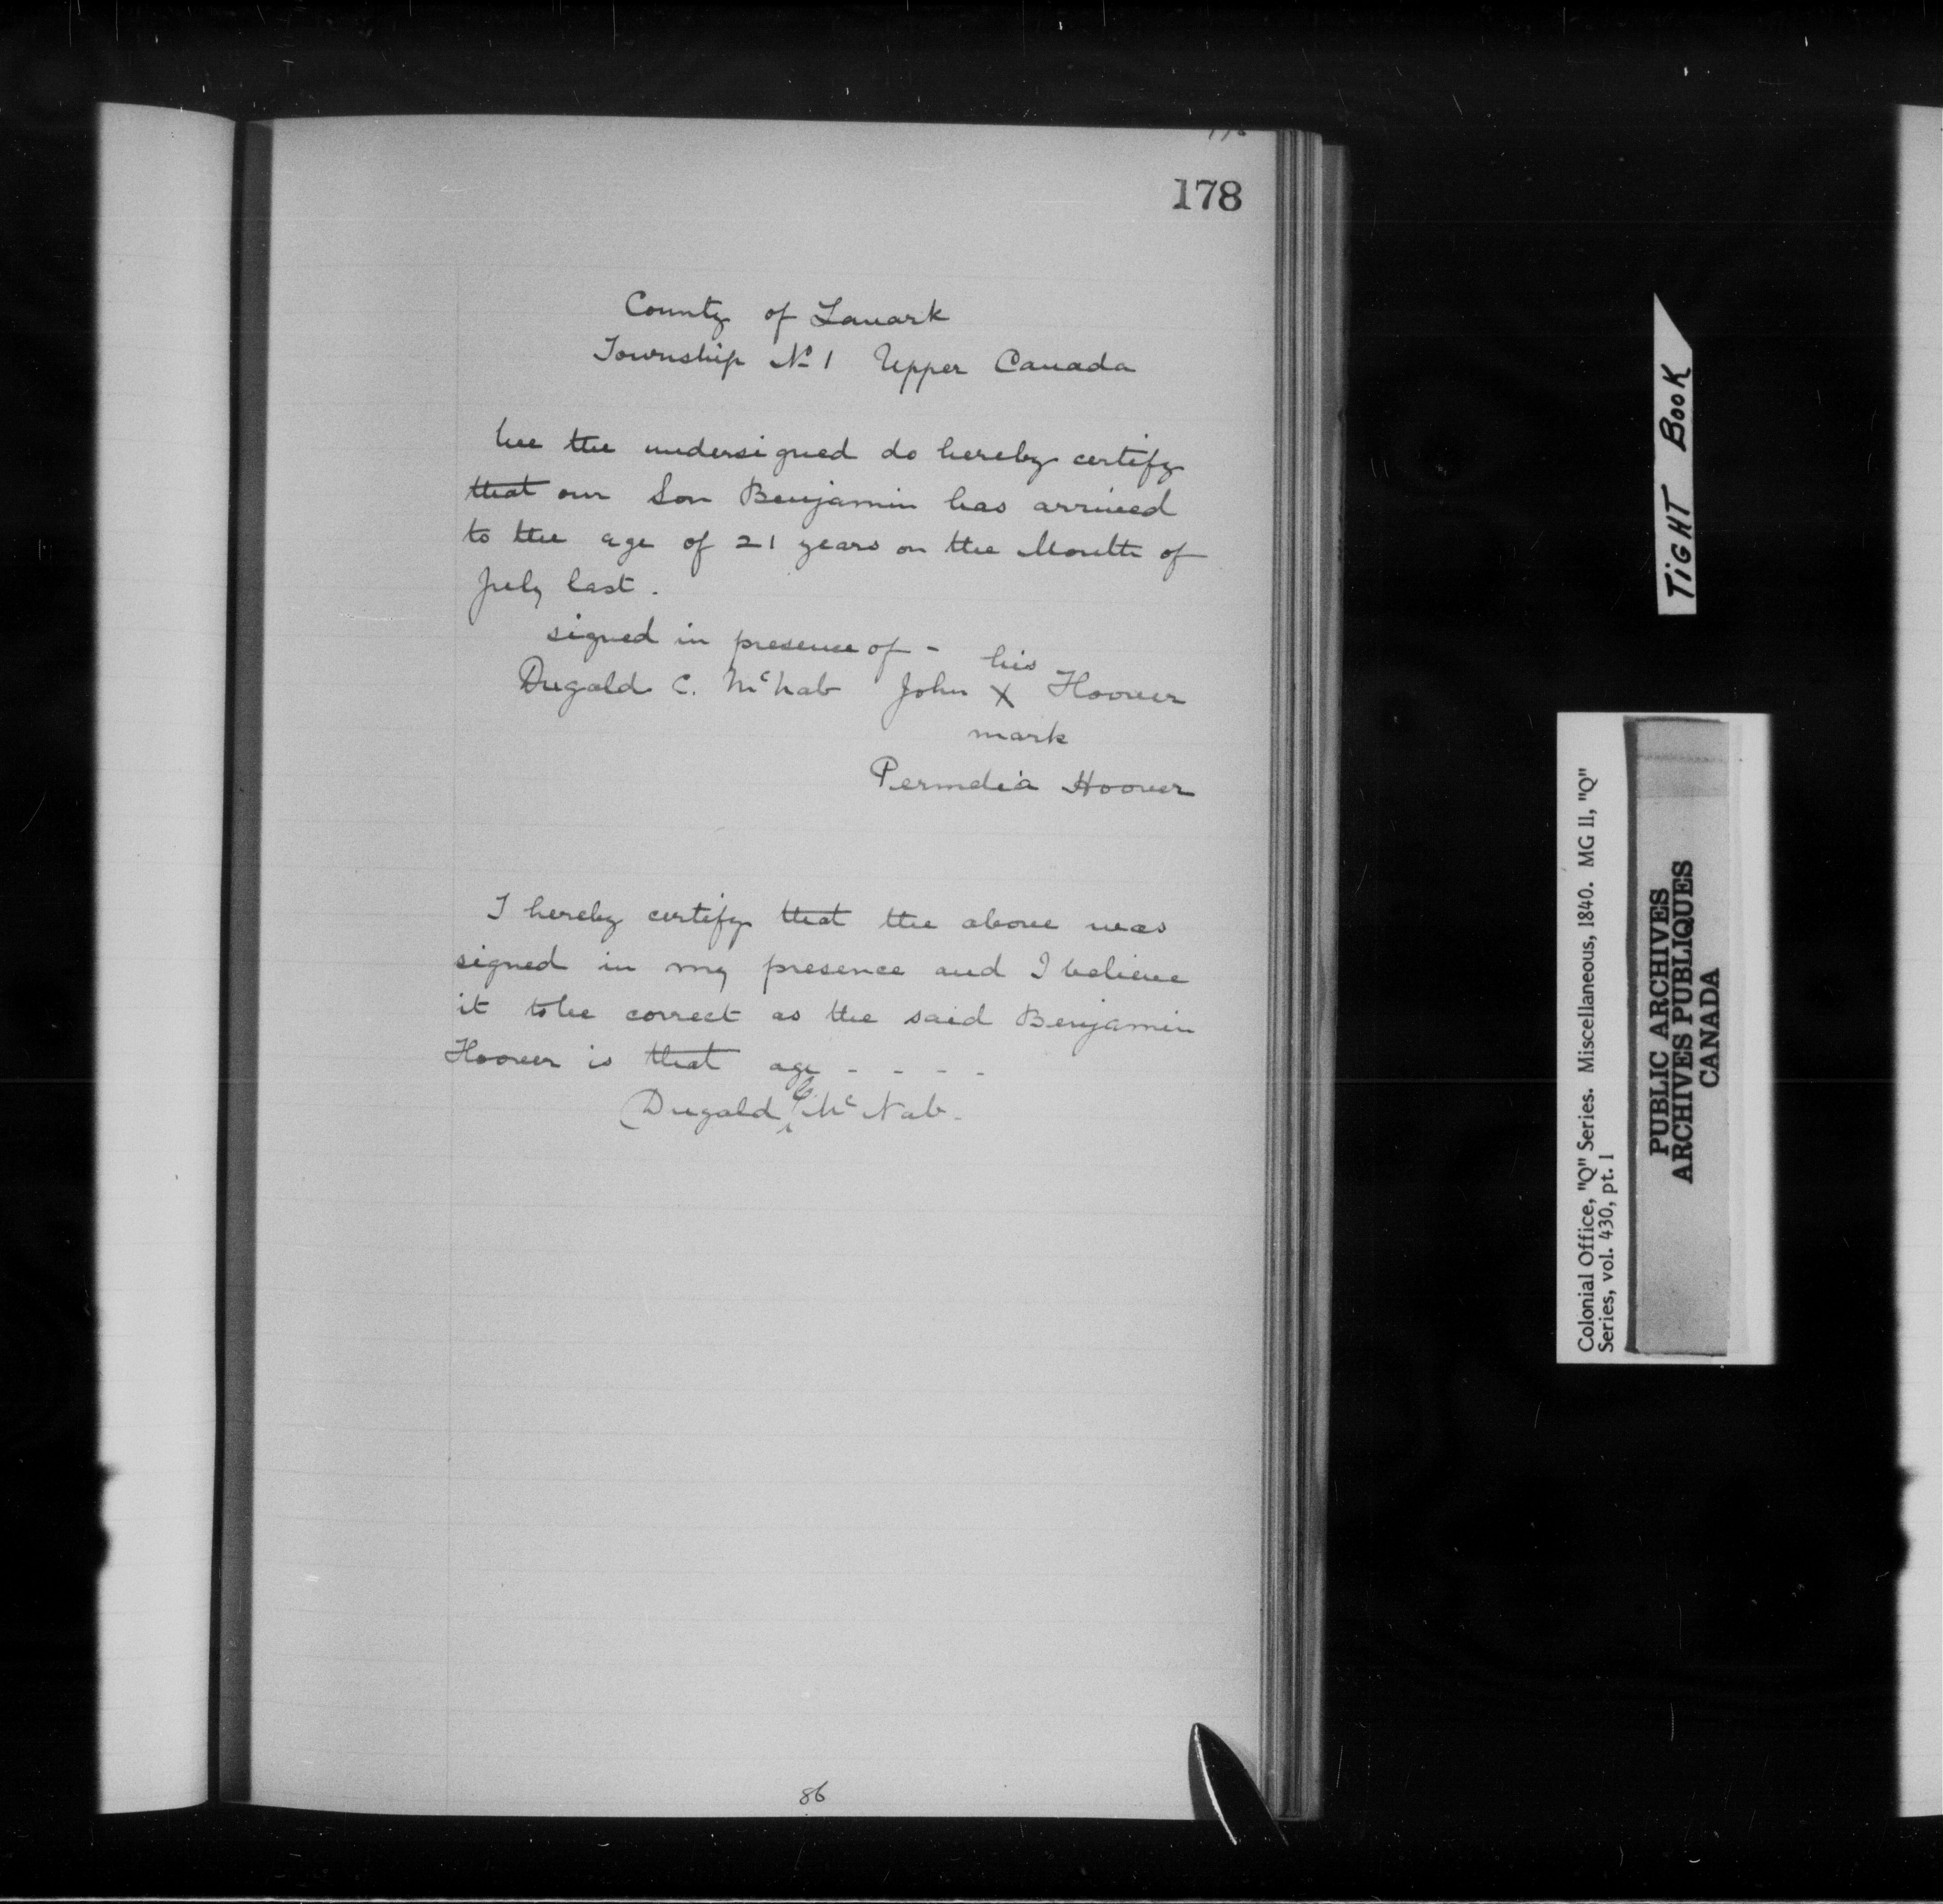 178
County of Lanark
Township No 1 Upper Canada
We the undersigned do hereby certify
that our Son Benjamin has arrived
to the age of 21 years on the Month of
July last.
signed in presence of -
his
Dugald C. McNab John X Hoover
mark
Permelia Hoover
I hereby certify that the above was
signed in my presence and I believe
it to be correct as the said Benjamin
Hoover is that age - - - -
Dugald C. McNab.
86
TIGHT BOOK
Colonial Office, "Q" Series. Miscellaneous, 1840. MG 11, "Q"
Series, vol. 430, pt. 1
PUBLIC ARCHIVES
ARCHIVES PUBLIQUES
CANADA